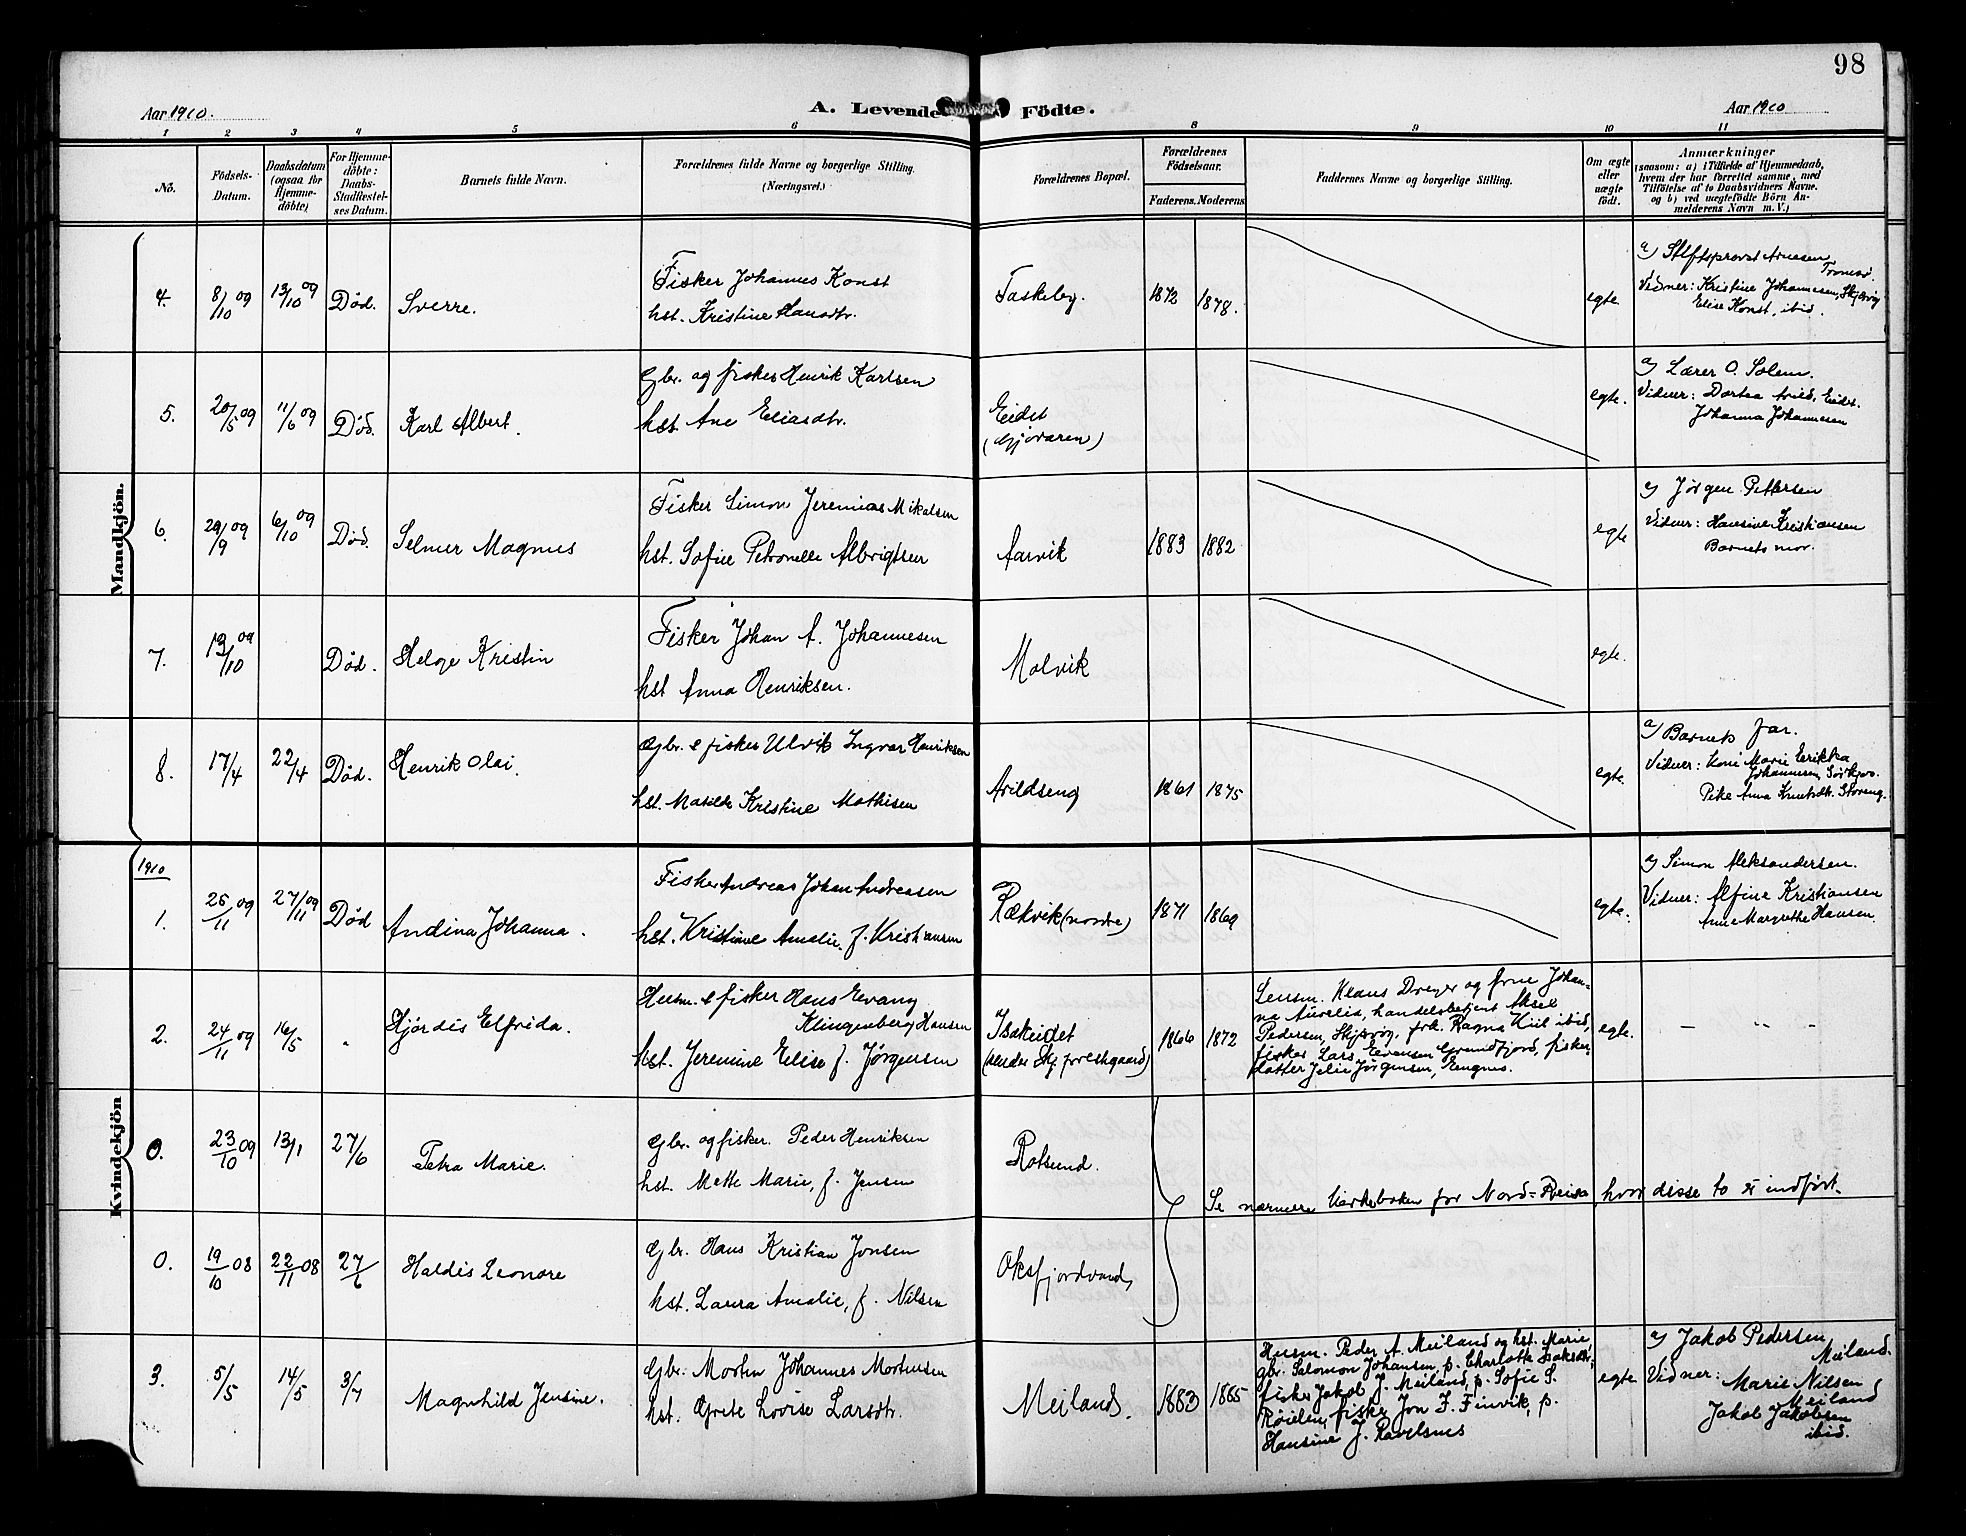 98
Aar 1910.
A. Levende Födte.
Aar 1910
1 2 3 4 5 6 8 9 10 11
No.
Födsels-Datum.
Daabsdatum (ogsaa for Hjemme-döbte)
For Hjemme-döbte: Daabs-Stadfæstel-ses Datum.
Barnets fulde Navn.
Forældrenes fulde Navne og borgerlige Stilling.
(Næringsvei.)
Forældrenes Bopæl.
Forældrenes Födselsaar.
Faderens. Moderens.
Faddernes Navne og borgerlige Stilling.
Om ægte eller uægte födt.
Anmærkninger
(saasom: a) i Tilfælde af Hjemmedaab,
hvem der har forrettet samme, med
Tilföielse af to Daabsvidners Navne.
og b) ved uægtefödte Börn An-
melderens Navn m. V.)
Mandkjön.
4. 8/10 09 13/10 09 Død. Sverre.
Fisker Johannes Konst
hst. Kristine Hansdtr.
Taskeby. 1872 1878. egte.
a) Stiftsprovst Arnesen Tromsø.
Vidner: Kristine Johannesen, Skjærvøy
Elise Konst, ibid.
5. 20/5 09 11/6 09 Død. Karl Albert.
Gbr. og fisker Henrik Karlsen
hst. Ane Eliasdtr.
Eidet
(Gjøvaren)
egte.
a) Lærer O. Solem.
Vidner: Dortea Arild, Eidet.
Johanna Johannesen
6. 29/9 09 6/10 09 Død. Selmer Magnus
Fisker Simon Jeremias Mikalsen
hst. Sofie Petronelle Albrigtsen
Aarvik 1883 1882 egte
a) Jørgen Pettersen
Vidner: Hansine Kristiansen
Barnets mor.
7. 13/10 09 Død. Helge Kristin
Fisker Johan A. Johannesen
hst Anna Henriksen.
Molvik egte.
8. 17/4 22/4 Død. Henrik Olai.
Gbr. & fisker Ulvik Ingvar Henriksen
hst. Matilde Kristine Mathisen
Arildseng 1861 1875 egte.
a) Barnets far.
Vidner: Kone Marie Erikka
Johannesen, Sørkjos.
Pike Anna Knutsdtr. Storeng.
Kvindekjön
1910
1. 26/11 09 27/11 09 Død Andina Johanna.
Fisker Andreas Johan Andreasen
hst. Kristine Amalie. f. Kristiansen
Rækvik (nordre) 1871 1869 egte.
a) Simon Aleksandersen.
Vidner: Alfine Kristiansen
Anne Margrethe Hansen.
2. 24/11 09 16/5 " Hjørdis Elfrida.
Husm. & fisker Hans Evang
Klingenberg Hansen
hst. Jeremine Elise f. Jørgensen
Isakeidet
(under Skj. prestegaard)
1866 1872
Lensm. Klaus Dreyer og frue Johan-
na Aurelia, handelsbetjent Aksel
Pedersen, Skjervøy, frk. Ragna Kiil ibid,
fisker Lars Evensen Grundfjord, fisker-
datter Jelie Jørgensen, Engnes.
egte. — " —
0. 23/10 09 13/1 27/6 Petra Marie.
Gbr. og fisker. Peder Henriksen
hst. Mette Marie, f. Jensen
Rotsund.
Se nærmere kirkeboken for Nord-Reisa, hvor disse to er indført.
0. 19/10 08 22/11 08 27/6 Haldis Leonore
Gbr. Hans Kristian Jonsen
hst. Laura Amalie, f. Nilsen
Oksfjordvand,
3. 5/5 14/5 3/7 Magnhild Jensine.
Gbr. Morten Johannes Mortensen
hst. Grete Lovise Larsdtr.
Meiland. 1883 1885
Husm. Peder A. Meiland og hst. Marie,
gbr. Salomon Johansen, p. Charlotte Isaksdtr.
fisker Jakob J. Meiland, p. Sofie S.
Røielen, fisker Jon F. Finvik, p.
Hansine J. Ravelsnes
egte
a) Jakob Pedersen
Meiland.
Vidner: Marie Nilsen
Meiland
Jakob Jakobsen
ibid.